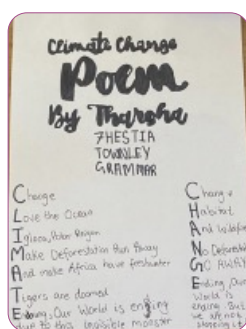 Climate Change
Poem
By Tharsha
7HESTIA
TOWNLEY
GRAMMAR
Change
Love the Ocean
Igloos, Polar Region
Make Deforestation Run Away
And make Africa have freshwater
Tigers are doomed
Ending, Our World is ending
due to this invisible monster
Change
Habitat
And Wildfire
No Deforestation
GO AWAY
Ending, Our
World is
ending. But
we